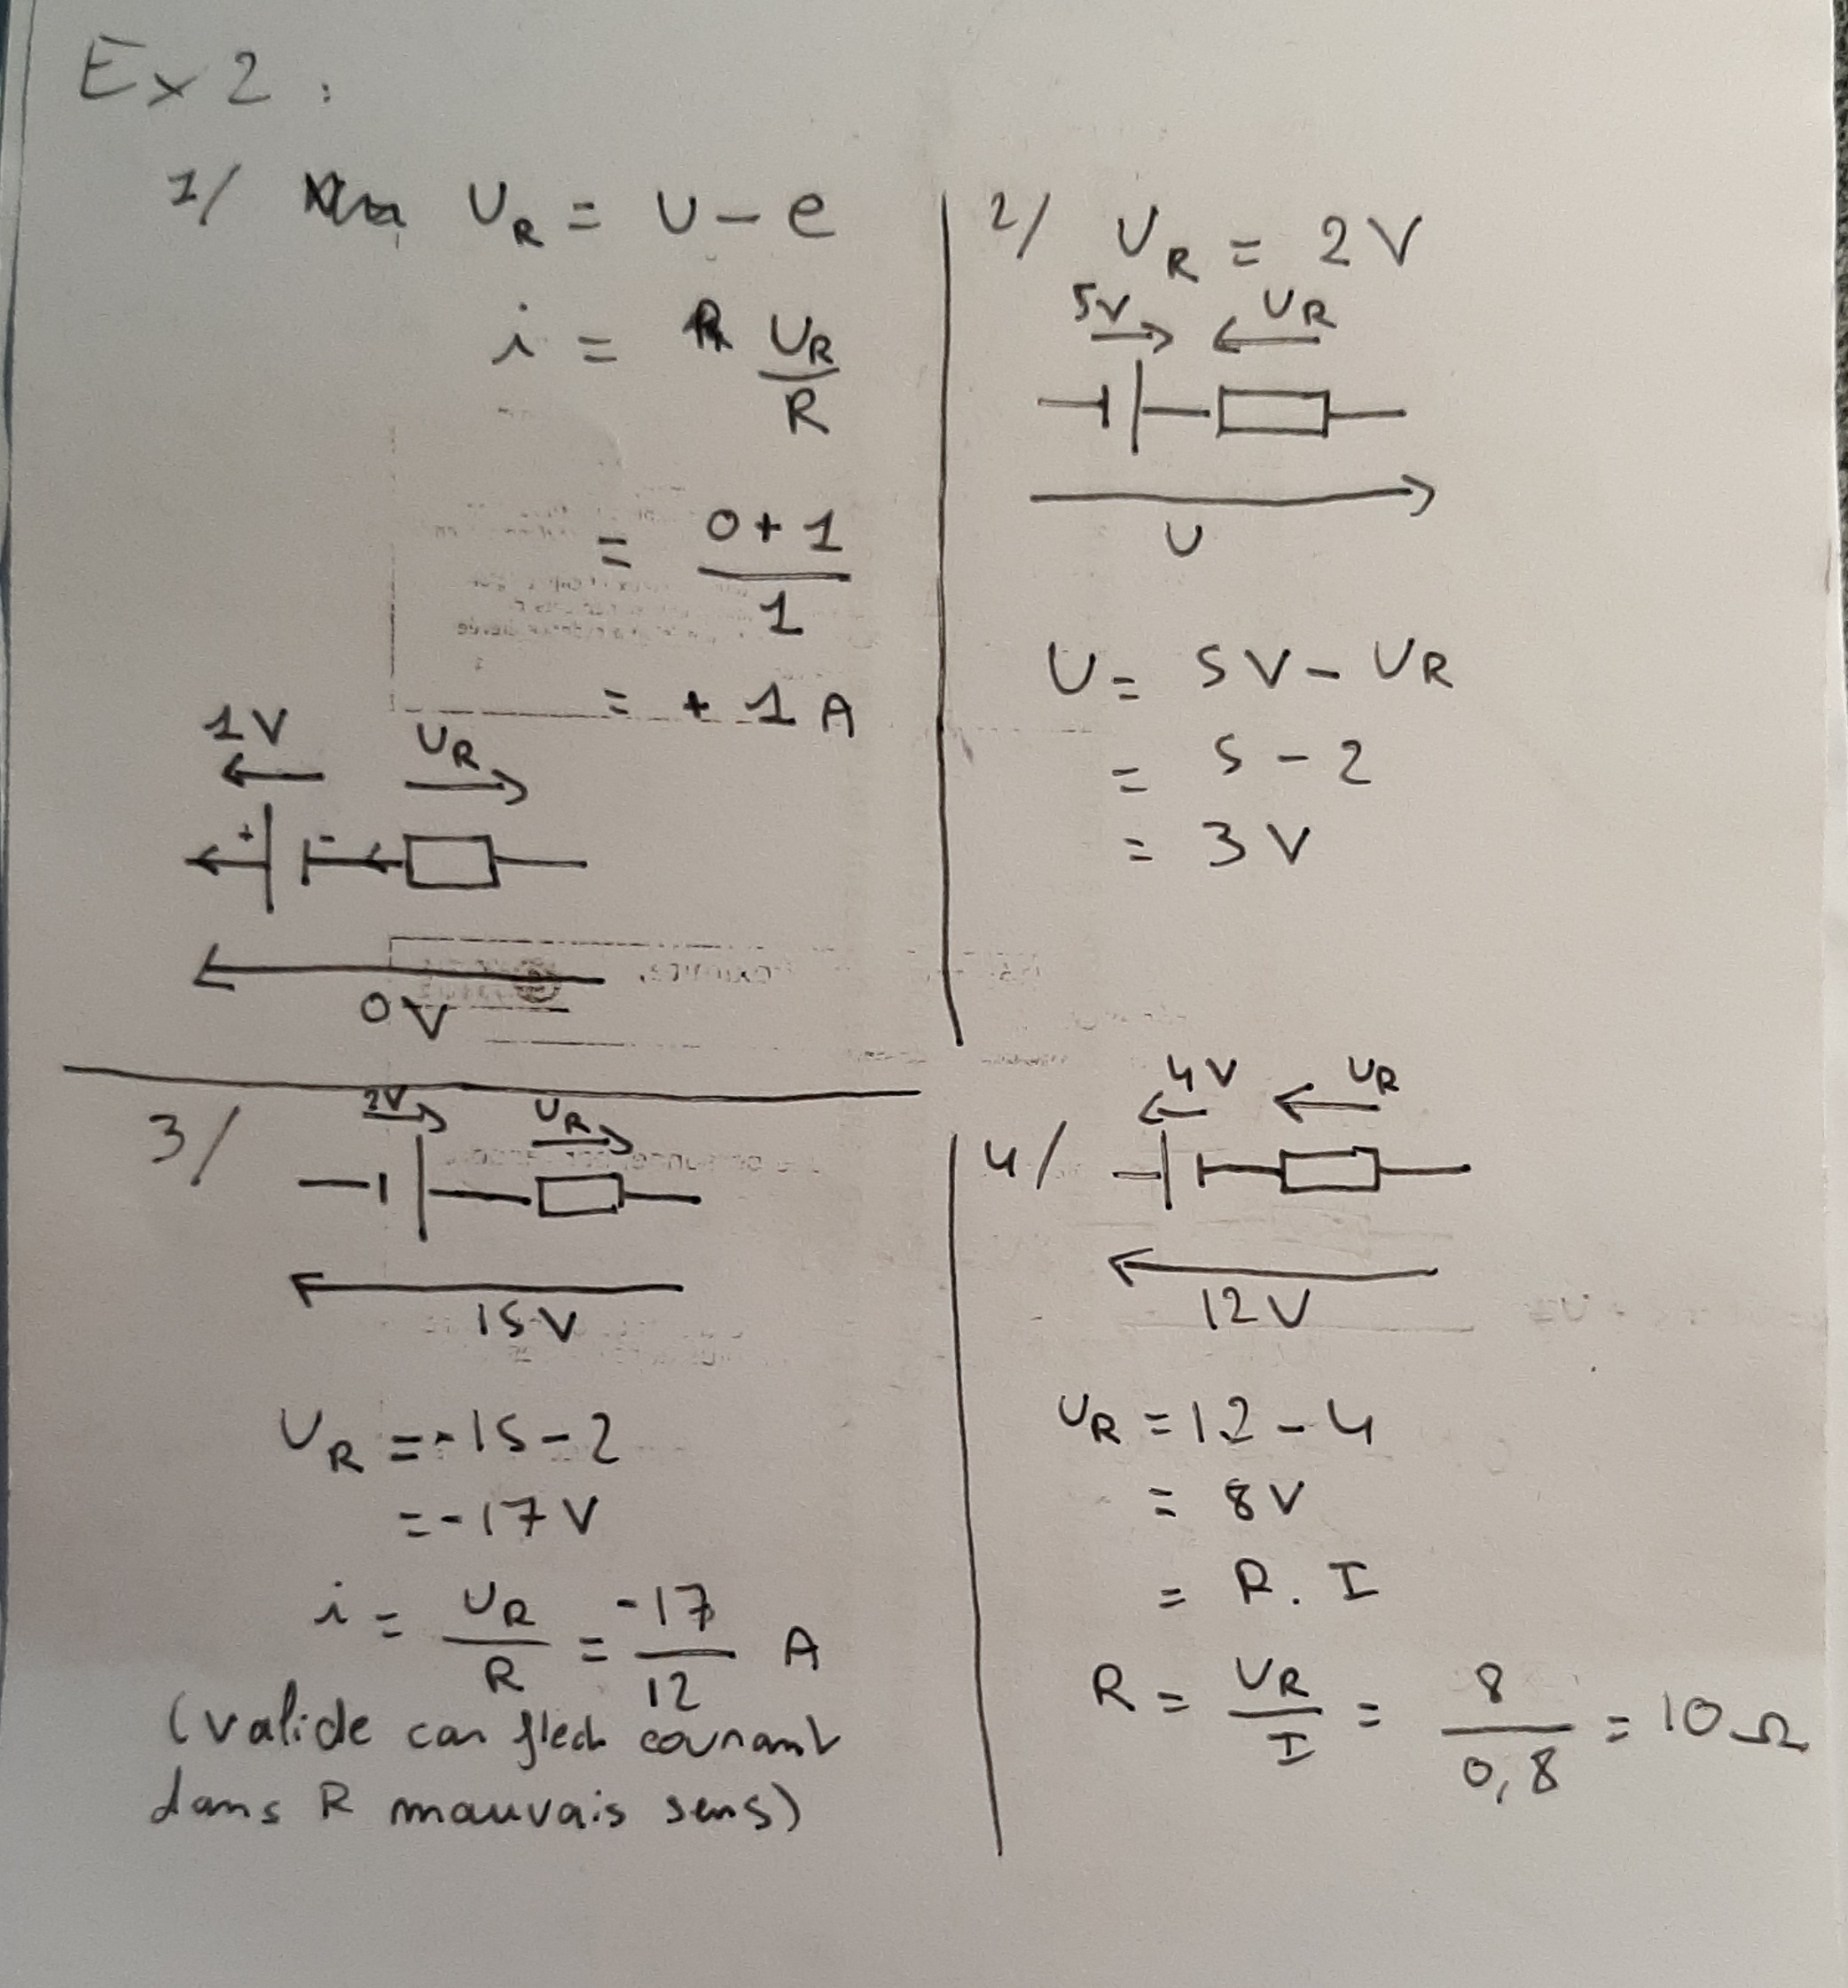 Ex 2 :
1/ U_R = U - e
i = U_R / R
= 0 + 1 / 1
= + 1 A
1V U_R
+ -
0V
2/ U_R = 2V
5V U_R
U
U = 5V - U_R
= 5 - 2
= 3V
3/ 2V U_R
15V
U_R = -15 - 2
= -17V
i = U_R / R = -17 / 12 A
(valide car flech courant
dans R mauvais sens)
4/ 4V U_R
12V
U_R = 12 - 4
= 8V
= R . I
R = U_R / I = 8 / 0,8 = 10 Ω